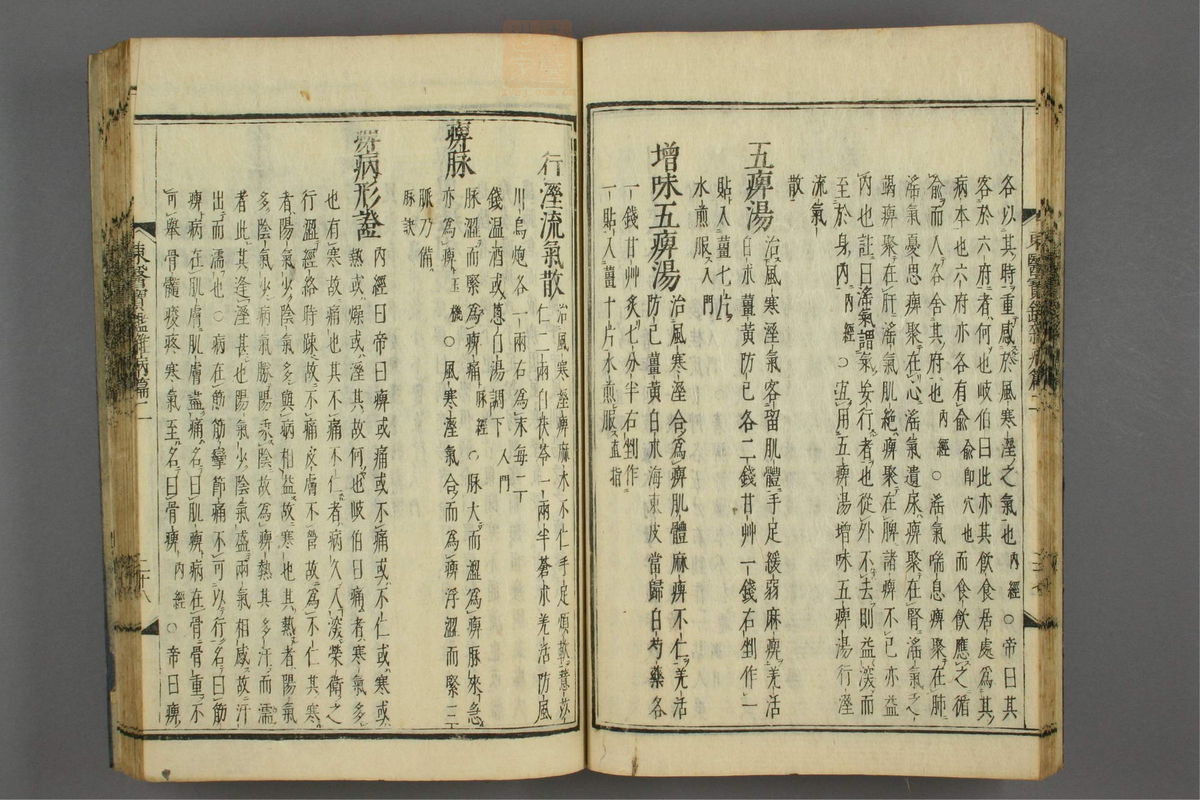 各以其時重感於風寒溼之氣也內經○帝曰其
客於六府者何也岐伯曰此亦其飲食居處爲其
病本也六府亦各有兪兪卽穴也而食飲應之循
兪而人各舍其府也內經○淫氣喘息痺聚在肺
淫氣憂思痺聚在心淫氣遺尿痺聚在腎淫氣乏
竭痺聚在肝淫氣肌絶痺聚在脾諸痺不已亦益
內也註曰淫氣謂氣妄行者也從外不去則益深而
至於身內內經○宜用五痺湯增味五痺湯行溼
流氣散
五痺湯治風寒溼氣客留肌體手足緩弱麻痺羌活
白朮薑黃防己各二錢甘艸一錢右剉作一
貼入薑七片
水煎服入門
增味五痺湯治風寒溼合爲痺肌體麻痺不仁羌活
防己薑黃白朮海東皮當歸白芍藥各
一錢甘艸灸七分半右剉作
一貼入薑十片水煎服直指
行溼流氣散治風寒溼痺麻木不仁手足煩軟薏苡
仁二兩白茯苓一兩半蒼朮羌活防風
川烏炮各一兩右爲末每二
錢溫酒或葱白湯調下入門
痺脉脉澀而緊爲痺痛脉經○脉大而澀爲痺脉來急
亦爲痺玉機○風寒溼氣合而爲痺浮澀而緊三
脈乃備
脉訣
痺病形證內經曰帝曰痺或痛或不痛或不仁或寒或
熱或燥或溼其故何也岐伯曰痛者寒氣多
也有寒故痛也其不痛不仁者病久入深榮衛之
行澀經絡時踈故不痛皮膚不營故爲不仁其寒
者陽氣少陰氣多與病相益故寒也其熱者陽氣
多陰氣少病氣勝陽乘陰故爲痺熱其多汗而濡
者此其逢溼甚也陽氣少陰氣盛兩氣相感故汗
出而濡也○病在筋筋攣節痛不可以行名曰筋
痺病在肌膚肌膚盡痛名曰肌痺病在骨骨重不
可擧骨髓痠疼寒氣至名曰骨痺內經○帝曰痺
東醫寶鑑雜病篇二
二十八